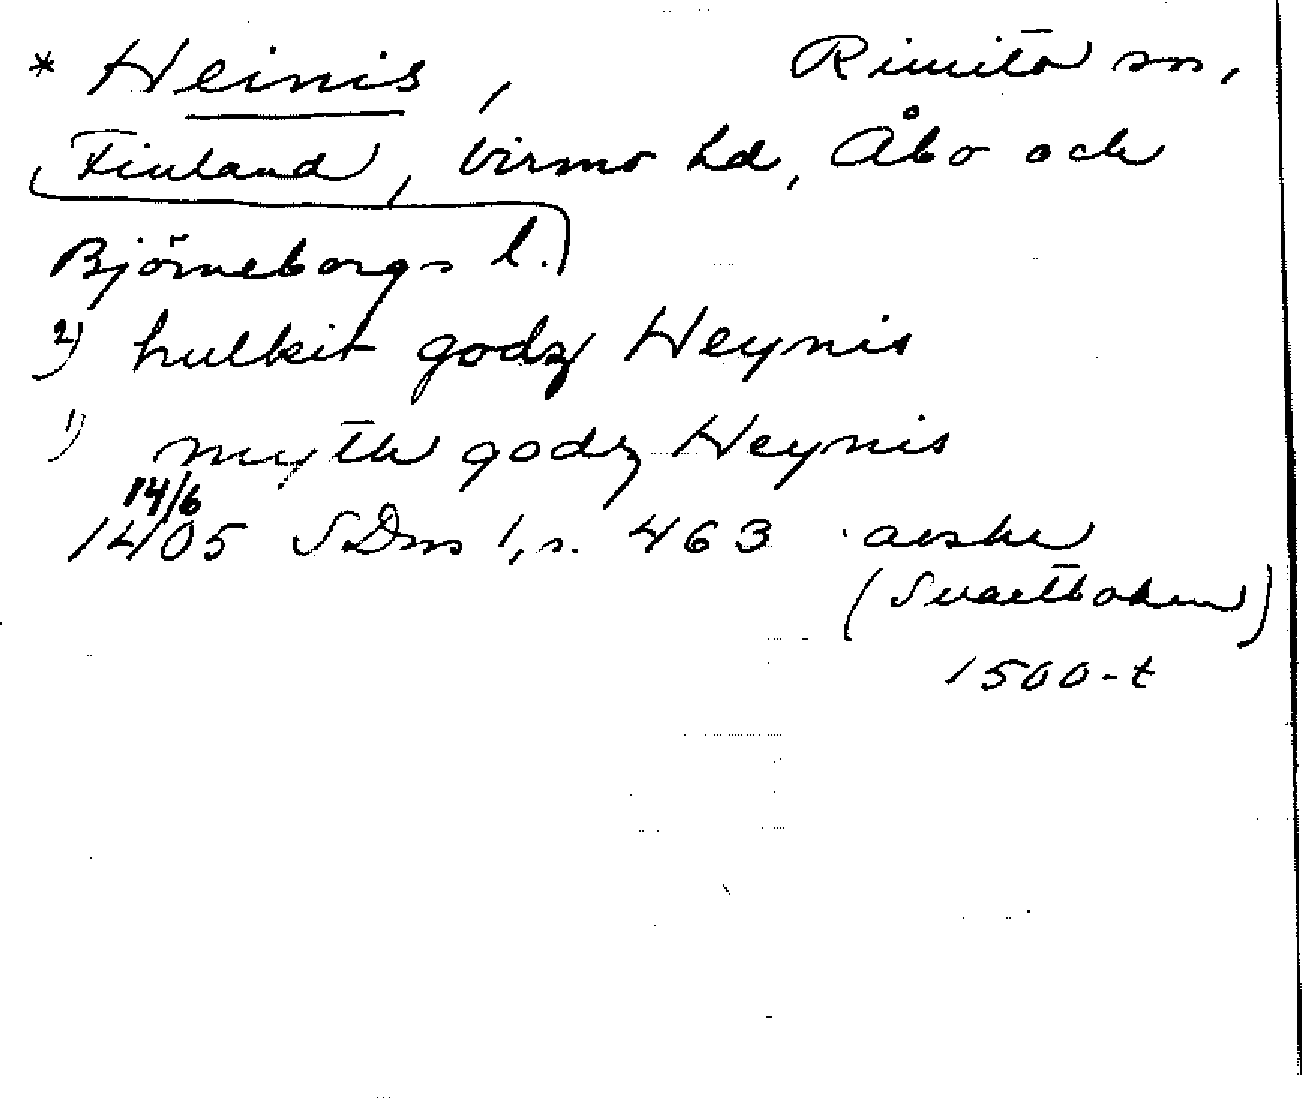 * Heinis, Rimito sn,
Finland, Virmo hd, Åbo och
Björneborgs l.)
2) hulkit godz Heynis
1) mytth godz Heynis
14/6
1405 SDns 1, s. 463 avskr
(Svartboken)
1500-t